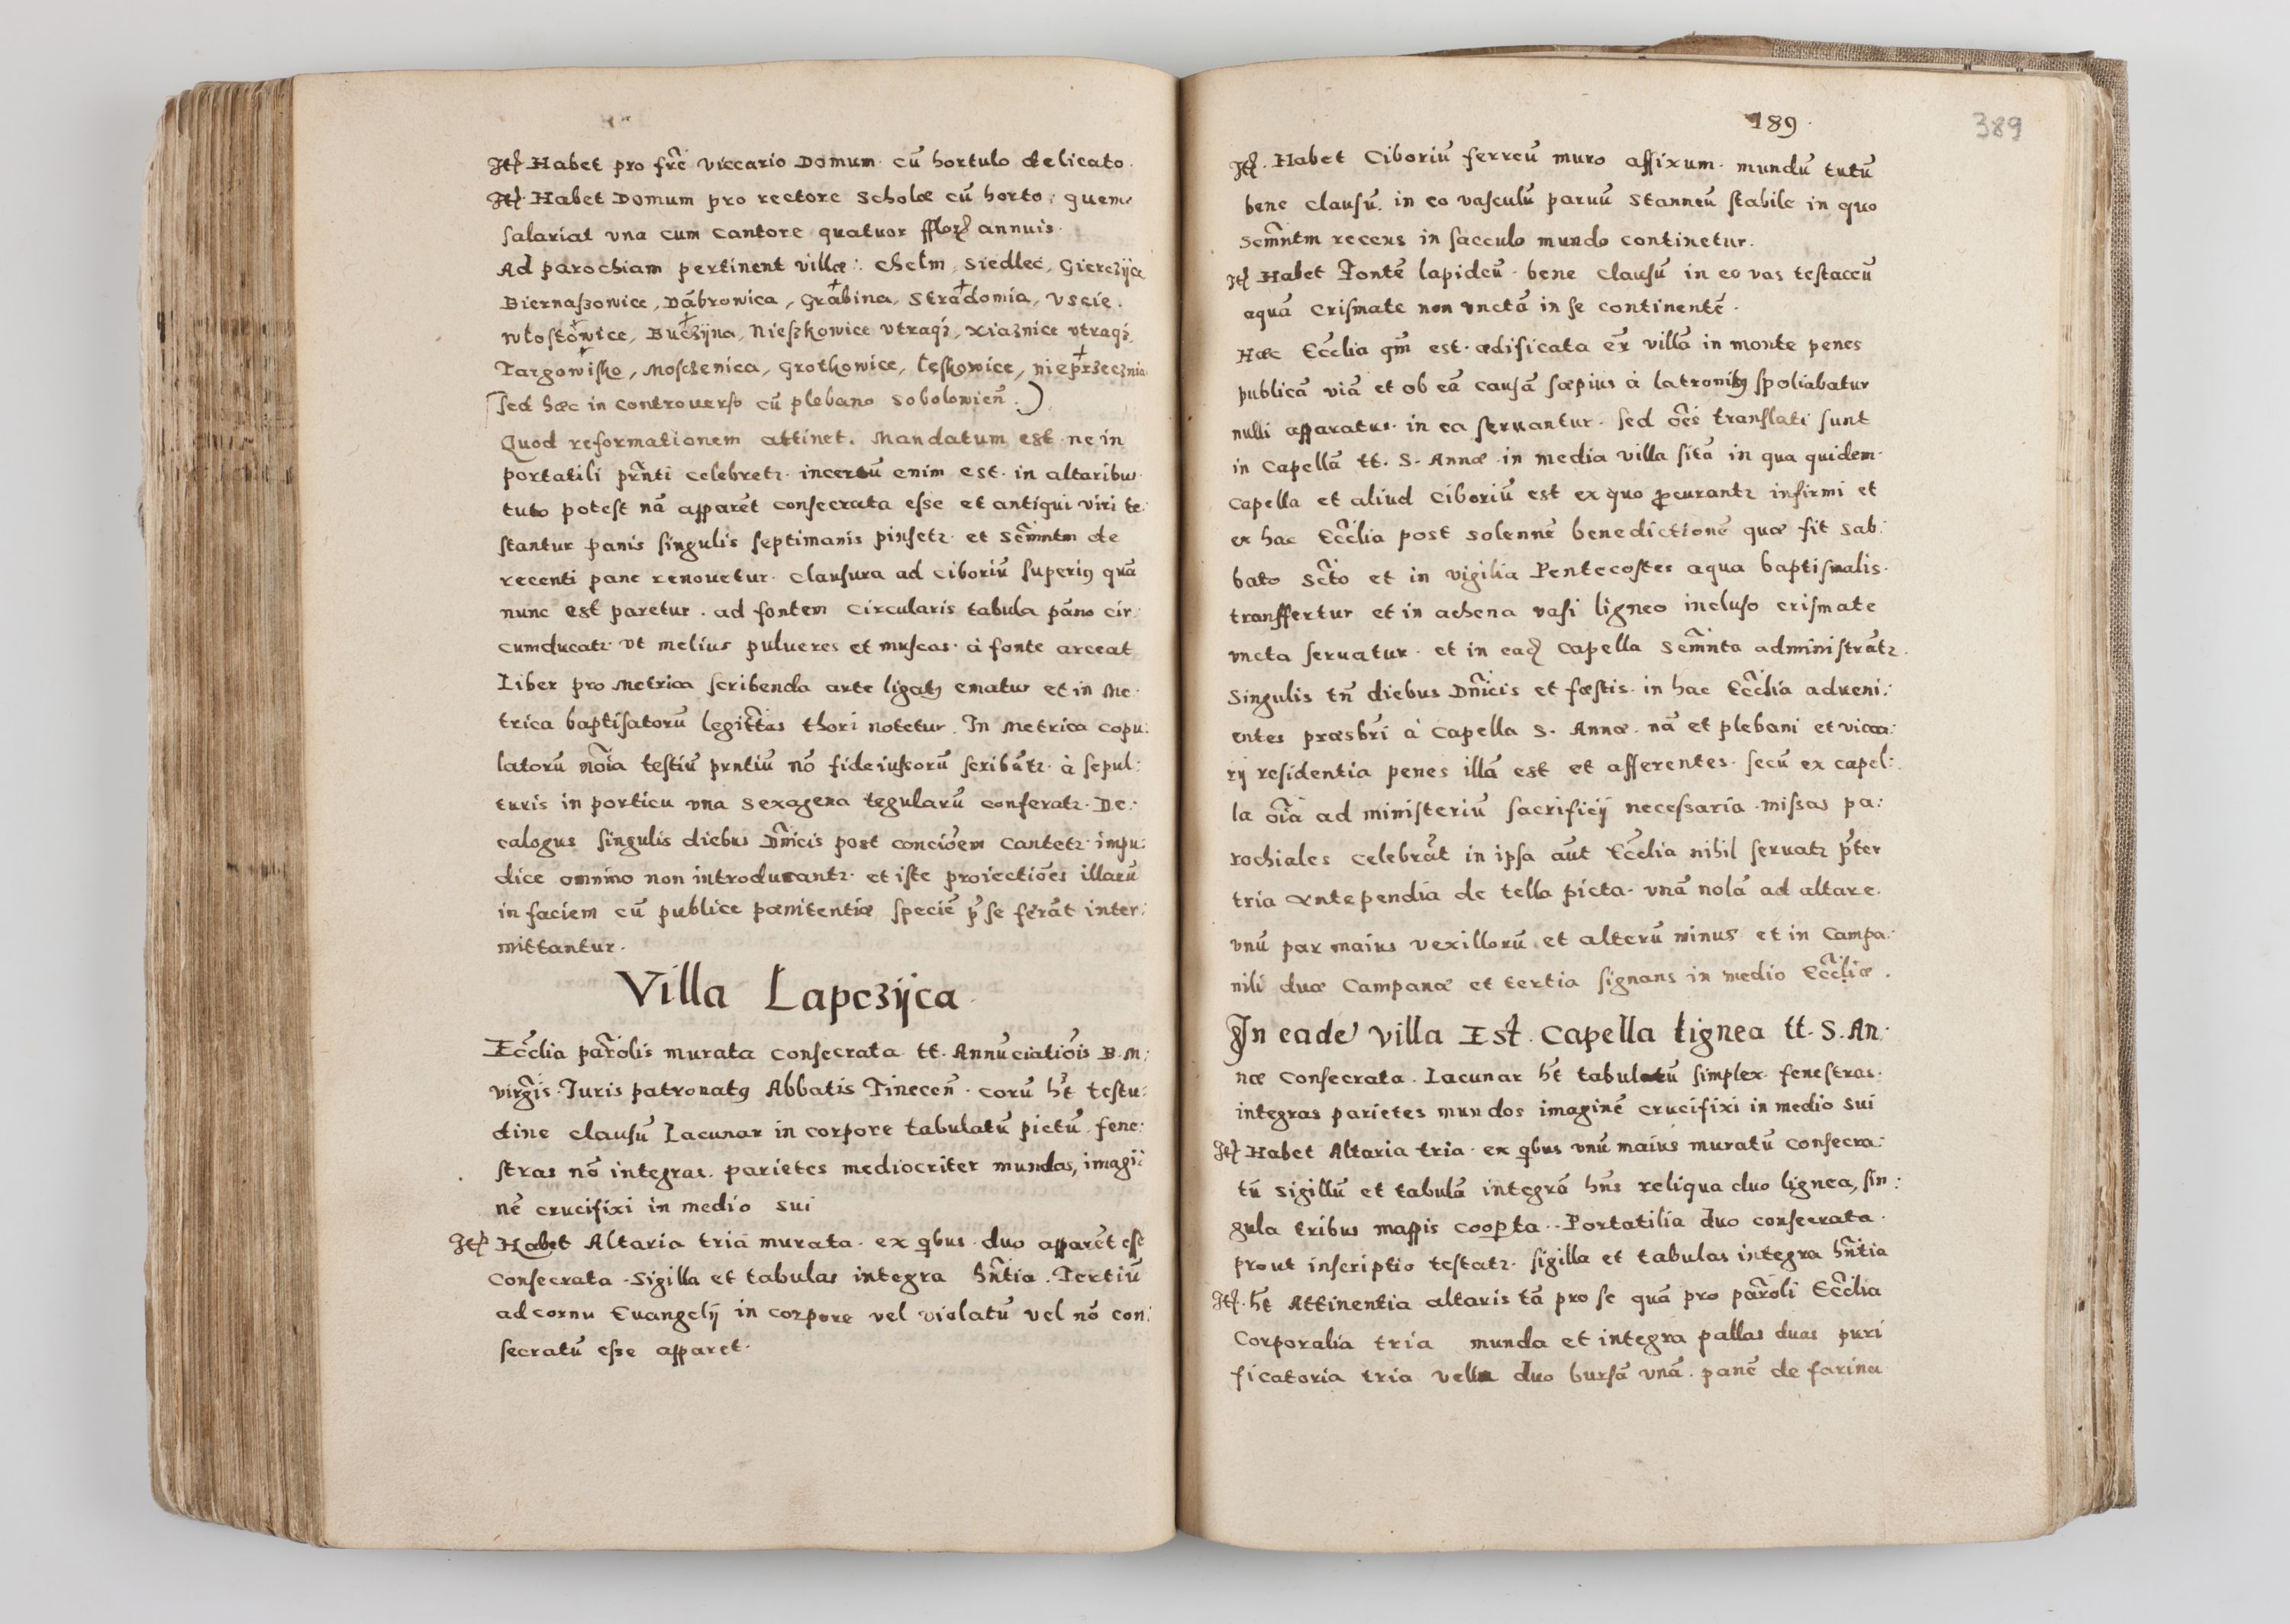 Itẽ Habet pro fr̃e viccario Domum cũ hortulo delicato.
Itẽ Habet Domum pro rectore Scholæ cũ horto, quem
salariat vna cum cantore quatuor fflor̃ annuis.
Ad parochiam pertinent villæ: Chełm, Siedlec, Gierczijce
Biernaszowice, Dãbrowica, Grabina, Stradomia, Vscie.
Włostowice, Buczijna, Nieszkowice vtraqʒ, Xiaznice vtraqʒ,
Targowisko, Moszczenica, Grotkowice, Łęzkowice, nieprzecznia
(sed hæc in controuerso cũ plebano Sobolowien̄.)
Quod reformationem attinet. Mandatum est ne in
portatili pr̃nti celebretʳ. incertũ enim est. in altaribus
tuto potest nã apparẽt consecrata esse et antiqui viri te:
stantur panis singulis septimanis pinsetʳ. et Sc̃mntm de
recenti pane renouetur. clausura ad ciboriũ superiꝰ quã
nunc est paretur. ad fontem circularis tabula pãno cir:
cumducatʳ. vt melius pulueres et muscas à fonte arceat
Liber pro Metrica scribenda arte ligatꝰ ematur et in Me:
trica baptisatorũ legitt̃as thori notetur. In Metrica copu:
latorũ nõia testiũ prntiũ nõ fideiussorũ scribũtʳ. à sepul:
turis in porticu vna sexagena tegularũ conferatʳ. De:
calogus singulis diebus Dñicis post conciõem cantetʳ. impu:
dice omnino non introducantʳ. et iste proiectiões illarũ
in faciem cũ publice pœnitentiæ speciẽ p̃ se ferãt inter:
mittantur.
Villa Lapczijca
Ecc̃lia par̃olis murata consecrata tt. Annũciatiõis B. M:
virg̃is. Iuris patronatꝰ Abbatis Tinecen̄. corũ hẽt testu:
dine clausũ Lacunar in corpore tabulatũ pictũ fene:
stras nõ integras. parietes mediocriter mundas, imagi:
nẽ crucifixi in medio sui
Itẽ Habet Altaria tria murata. ex qbus duo apparẽt esse
consecrata. Sigilla et tabulas integra hñtia. Tertiũ
ad cornu Euangelij in corpore vel violatũ vel nõ con:
secratũ esse apparet.
189.
389
Itẽ. Habet Ciboriũ ferreũ muro affixum. mundũ tutũ
bene clausũ. in eo vasculũ paruũ stanneũ stabile in quo
Scm̃ntm recens in sacculo mundo continetur.
Itẽ Habet Fontẽ lapideũ. bene clausũ in eo vas testaceũ
aquã Crismate non vnctã in se continentẽ.
Hæc Ecc̃lia qm̃ est. ædificata ex̃ villã in monte penes
publicã viã et ob eã causã sæpius à latronibꝰ spoliabatur
nulli apparatus in ea seruantur. sed oẽs translati sunt
in Capellã tt. S. Annæ in media villa sitã in qua quidem
Capella et aliud Ciboriũ est ex quo ꝓcurantʳ infirmi et
ex hac Ecc̃lia post solennẽ benedictionẽ quæ fit Sab:
bato Sc̃to et in vigilia Pentecostes aqua baptismalis
transffertur et in aehena vasi ligneo incluso crismate
vncta seruatur. et in eadẽ Capella Sem̃nta administrãtʳ.
Singulis tñ diebus Dñicis et fæstis. in hac Ecc̃lia adueni:
entes præsbri à Capella S. Annæ. nã et plebani et vicca:
rij residentia penes illã est et afferentes. secũ ex capel:
la oĩa ad ministeriũ sacrificij necessaria. missas pa:
rochiales celebrãt in ipsa aũt Ecc̃lia nihil seruatʳ p̃ter
tria Antependia de tella picta. vnã nolã ad altare.
vnũ par maius vexillorũ et alterũ minus et in Campa:
nili duæ Campanæ et tertia signans in medio Ecc̃liæ.
In eadẽ villa Est. Capella lignea tt. S. An:
næ Consecrata. Lacunar hẽt tabulatũ simplex. fenestras
integras parietes mundos imaginẽ crucifixi in medio sui
Itẽ Habet Altaria tria. ex qbus vnũ maius muratũ consecra:
tũ Sigillũ et tabulã integrã hñs reliqua duo lignea, sin:
gula tribus mappis cooꝑta. Portatilia duo consecrata.
prout inscriptio testatʳ. sigilla et tabulas integra hñtia
Itẽ. hẽt Attinentia altaris tã pro se quã pro par̃oli Ecc̃lia
Corporalia tria munda et integra pallas duas puri
ficatoria tria vella duo bursã vnã. panẽ de farina